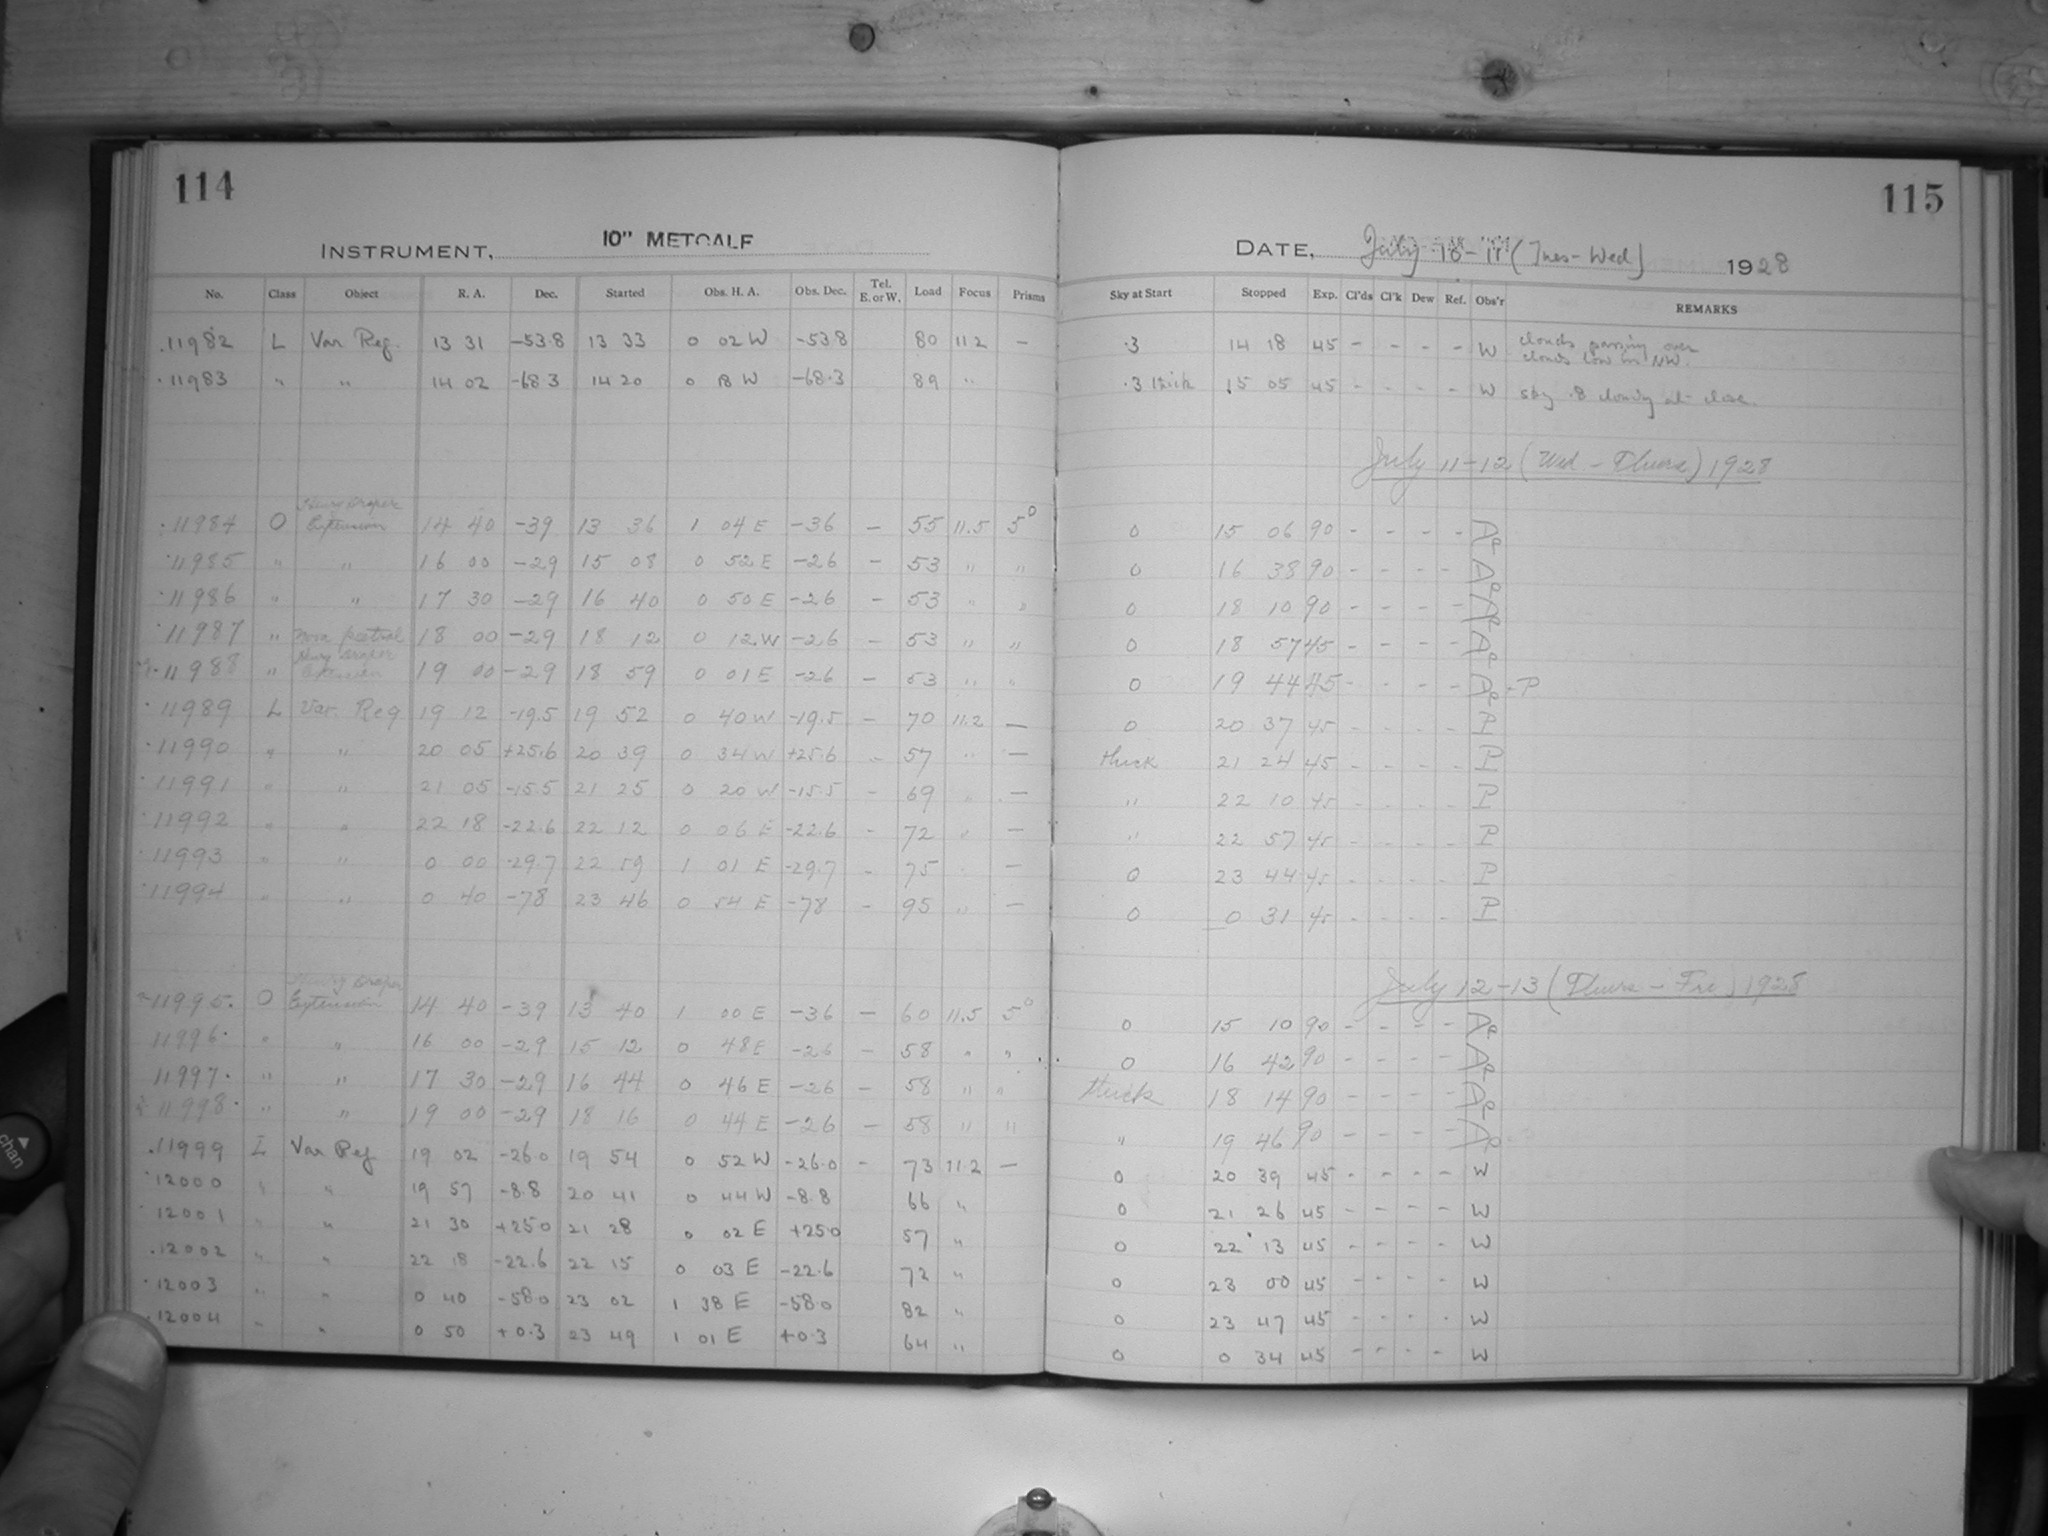 114
INSTRUMENT, 10" METCALF
No. Class Object R. A. Dec. Started Obs. H. A. Obs. Dec. Tel. E. or W. Load Focus Prisms
11982 L Var Reg. 13 31 -53.8 13 33 0 02 W -53.8 80 11 2 -
11983 " " 14 02 -68.3 14 20 0 18 W -68.3 89 "
11984 O Henry Draper Extension 14 40 -39 13 36 1 04 E -36 - 55 11.5 5°
11985 " " 16 00 -29 15 08 0 52 E -26 - 53 " "
11986 " " 17 30 -29 16 40 0 50 E -26 - 53 " "
11987 " 18 00 -29 18 12 0 12 W -26 - 53 " "
11988 " Henry Draper Extension 19 00 -29 18 59 0 01 E -26 - 53 " "
11989 L Var. Reg 19 12 -19.5 19 52 0 40 W -19.5 - 70 11.2 -
11990 " " 20 05 +25.6 20 39 0 34 W +25.6 - 57 " -
11991 " " 21 05 -15.5 21 25 0 20 W -15.5 - 69 " -
11992 " " 22 18 -22.6 22 12 0 06 E -22.6 - 72 " -
11993 " " 0 00 -29.7 22 59 1 01 E -29.7 - 75 -
11994 " " 0 40 -78 23 46 0 54 E -78 - 95 " -
11995 O Henry Draper Extension 14 40 -39 13 40 1 00 E -36 - 60 11.5 5°
11996 " " 16 00 -29 15 12 0 48 E -26 - 58 " "
11997 " " 17 30 -29 16 44 0 46 E -26 - 58 " "
11998 " " 19 00 -29 18 16 0 44 E -26 - 58 " "
11999 L Var Reg 19 02 -26.0 19 54 0 52 W -26.0 - 73 11.2 -
12000 " " 19 57 -8.8 20 41 0 44 W -8.8 66 "
12001 " " 21 30 +25.0 21 28 0 02 E +25.0 57 "
12002 " " 22 18 -22.6 22 15 0 03 E -22.6 72 "
12003 " " 0 40 -58.0 23 02 1 38 E -58.0 82 "
12004 " " 0 50 +0.3 23 49 1 01 E +0.3 64 "
115
DATE, July 10-11 (Tues-Wed) 1928
Sky at Start Stopped Exp. Cl'ds Cl'k Dew Ref. Obs'r REMARKS
.3 14 18 45 - - - - W clouds passing over
clouds low in NW.
.3 thick 15 05 45 - - - - W sky .8 cloudy at close.
July 11-12 (Wed - Thurs) 1928
0 15 06 90 - - - -
0 16 38 90 - - - -
0 18 10 90 - - - -
0 18 57 45 - - - -
0 19 44 45 - - - - - P
0 20 37 45 - - - - P
thick 21 24 45 - - - - P
" 22 10 45 - - - - P
" 22 57 45 - - - - P
0 23 44 45 - - - - P
0 0 31 45 - - - - P
July 12-13 (Thurs - Fri) 1928
0 15 10 90 - - - -
0 16 42 90 - - - -
thick 18 14 90 - - - -
" 19 46 90 - - - -
0 20 39 45 - - - - W
0 21 26 45 - - - - W
0 22 13 45 - - - - W
0 23 00 45 - - - - W
0 23 47 45 - - - - W
0 0 34 45 - - - - W
chan